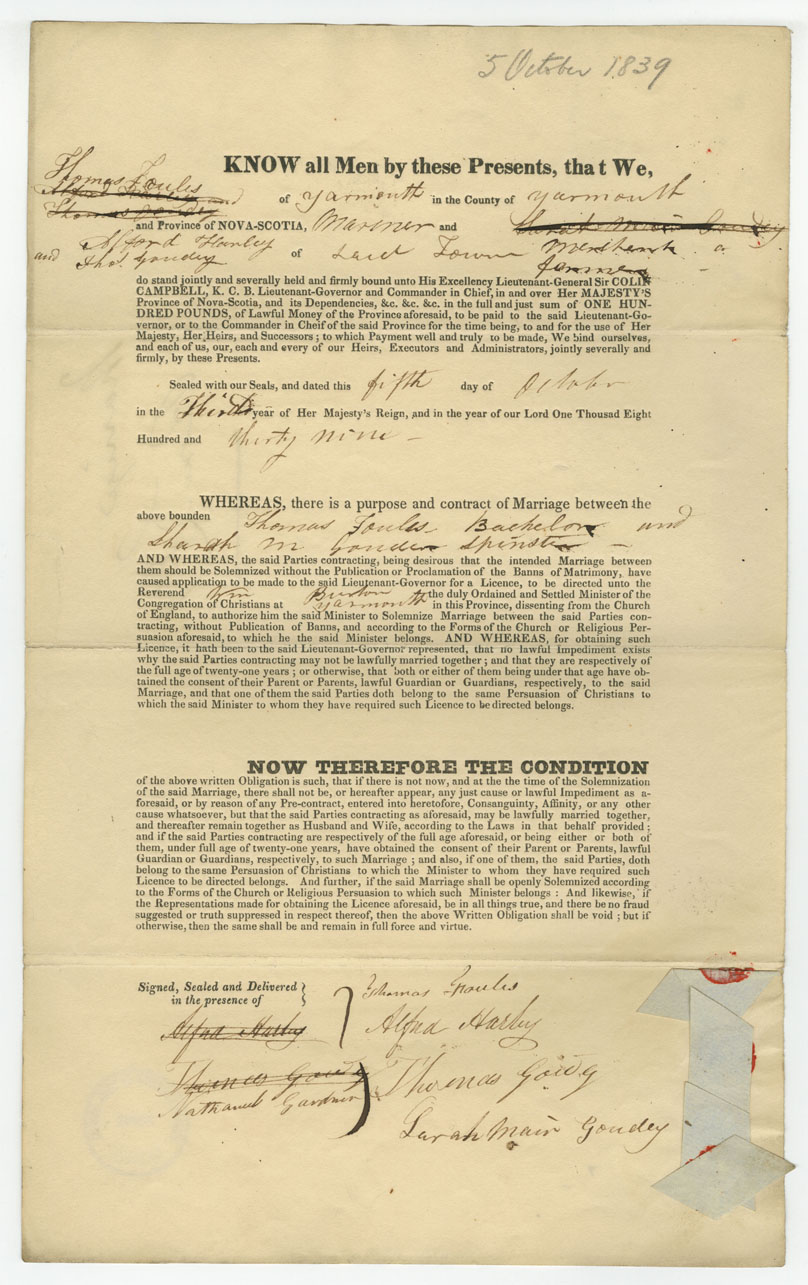 5 October 1839
KNOW all Men by these Presents, that We,
Thomas Foules
Alfred Harley and
of Yarmouth in the County of Yarmouth
Thomas Goudey
and Province of NOVA-SCOTIA, Mariner and Sarah Mair Goudey
and Alford Harley
Thos. Goudey of said Town Merchant a
farmer
do stand jointly and severally held and firmly bound unto His Excellency Lieutenant-General Sir COLIN
CAMPBELL, K. C. B. Lieutenant-Governor and Commander in Chief, in and over Her MAJESTY'S
Province of Nova-Scotia, and its Dependencies, &c. &c. &c. in the full and just sum of ONE HUN-
DRED POUNDS, of Lawful Money of the Province aforesaid, to be paid to the said Lieutenant-Go-
vernor, or to the Commander in Cheif of the said Province for the time being, to and for the use of Her
Majesty, Her Heirs, and Successors; to which Payment well and truly to be made, We bind ourselves,
and each of us, our, each and every of our Heirs, Executors and Administrators, jointly severally and
firmly, by these Presents.
Sealed with our Seals, and dated this fifth day of October
in the Third year of Her Majesty's Reign, and in the year of our Lord One Thousad Eight
Hundred and thirty nine —
WHEREAS, there is a purpose and contract of Marriage between the
above bounden Thomas Foules Bachelor and
Sharah M Gouden Spinster —
AND WHEREAS, the said Parties contracting, being desirous that the intended Marriage between
them should be Solemnized without the Publication or Proclamation of the Banns of Matrimony, have
caused application to be made to the said Lieutenant-Governor for a Licence, to be directed unto the
Reverend Wm Burton the duly Ordained and Settled Minister of the
Congregation of Christians at Yarmouth in this Province, dissenting from the Church
of England, to authorize him the said Minister to Solemnize Marriage between the said Parties con-
tracting, without Publication of Banns, and according to the Forms of the Church or Religious Per-
suasion aforesaid, to which he the said Minister belongs. AND WHEREAS, for obtaining such
Licence, it hath been to the said Lieutenant-Governor represented, that no lawful Impediment exists
why the said Parties contracting may not be lawfully married together; and that they are respectively of
the full age of twenty-one years; or otherwise, that both or either of them being under that age have ob-
tained the consent of their Parent or Parents, lawful Guardian or Guardians, respectively, to the said
Marriage, and that one of them the said Parties doth belong to the same Persuasion of Christians to
which the said Minister to whom they have required such Licence to be directed belongs.
NOW THEREFORE THE CONDITION
of the above written Obligation is such, that if there is not now, and at the the time of the Solemnization
of the said Marriage, there shall not be, or hereafter appear, any just cause or lawful Impediment as a-
foresaid, or by reason of any Pre-contract, entered into heretofore, Consanguinty, Affinity, or any other
cause whatsoever, but that the said Parties contracting as aforesaid, may be lawfully married together,
and thereafter remain together as Husband and Wife, according to the Laws in that behalf provided;
and if the said Parties contracting are respectively of the full age aforesaid, or being either or both of
them, under full age of twenty-one years, have obtained the consent of their Parent or Parents, lawful
Guardian or Guardians, respectively, to such Marriage; and also, if one of them, the said Parties, doth
belong to the same Persuasion of Christians to which the Minister to whom they have required such
Licence to be directed belongs. And further, if the said Marriage shall be openly Solemnized according
to the Forms of the Church or Religious Persuasion to which such Minister belongs: And likewise, if
the Representations made for obtaining the Licence aforesaid, be in all things true, and there be no fraud
suggested or truth suppressed in respect thereof, then the above Written Obligation shall be void; but if
otherwise, then the same shall be and remain in full force and virtue.
Signed, Sealed and Delivered
in the presence of
Thomas Foules
Alfred Harley
Alfred Harley
Thomas Goudey
Thomas Goudy
Nathaniel Gardner
Sarah Mair Goudey